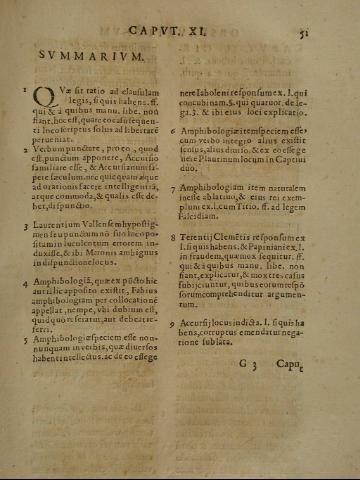 CAPVT. XI. 51
SVMMARIVM.
1 QVæ sit ratio ad clausulam
legis, si quis habens. ff.
qui & à quibus manu. libe. non
fiant, hoc est, quare eo casu sequen-
ti loco scriptus solus ad libertatē
perueniat.
2 Verbum punctare, pro eo, quod
est, punctum apponere, Accursio
familiare esse, & Accursianum sæ-
pere sæculum. nec quicquam æque
ad orationis facere intelligentiā,
atque commoda, & qualis esse de-
bet, dispunctio.
3 Laurentium Vallensem hypostig-
men seu punctum nō suo loco po-
situm in luculentum errorem in-
duxisse, & ibi Maronis ambiguus
in dispunctione locus.
4 Amphibologiā, quæ ex pūcto hic
aut illic apposito existit, Fabius
amphibologiam per collocationē
appellat, nempe, vbi dubium est,
quid quò referatur, aut debeat re-
ferri.
5 Amphibologiæ speciem esse non-
nunquam in verbis, quæ diuersos
habent intellectus. ac de eo ele­ge
nere Iaboleni responsum ex. l. qui
concubinam. §. qui quatuor. de le-
ga. 3. & ibi eius loci explicatio.
6 Amphibologiæ item speciem esse
cum verbo integro alius existit
sensus, alius diuiso. & ex eo esse ge
nere Plautinum locum in Captiui
duo.
7 Amphibologiam item naturalem
inesse ablatiuo, & eius rei exem-
plum ex. l. cum Titio. ff. ad legem
Falcidiam.
8 Terentij Clemētis responsum ex
l. si quis habens, & Papiniani ex. l.
in fraudem, quæ mox sequitur. ff.
qui & à quibus manu. libe. non
fiant, explicatur, & mox tres casus
subijciuntur, quibus eorum respō
sorum comprehenditur argumen-
tum.
9 Accursij locus indicta. l. si quis ha
bens, corruptus emendatur nega-
tione sublata.
G 3 Capu